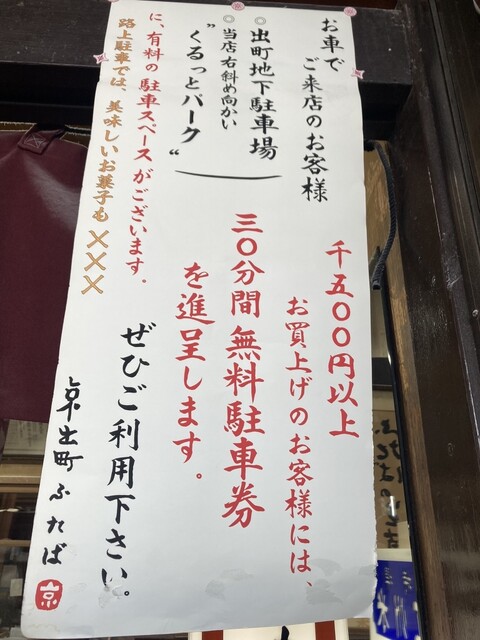 お車で
ご来店のお客様
◎出町地下駐車場
◎当店右斜め向かい
"くるっとパーク"
に、有料の駐車スペースがございます。
路上駐車では、美味しいお菓子も×××
千五〇〇円以上
お買上げのお客様には、
三〇分間無料駐車券
を進呈します。
ぜひご利用下さい。
京出町ふたば
京